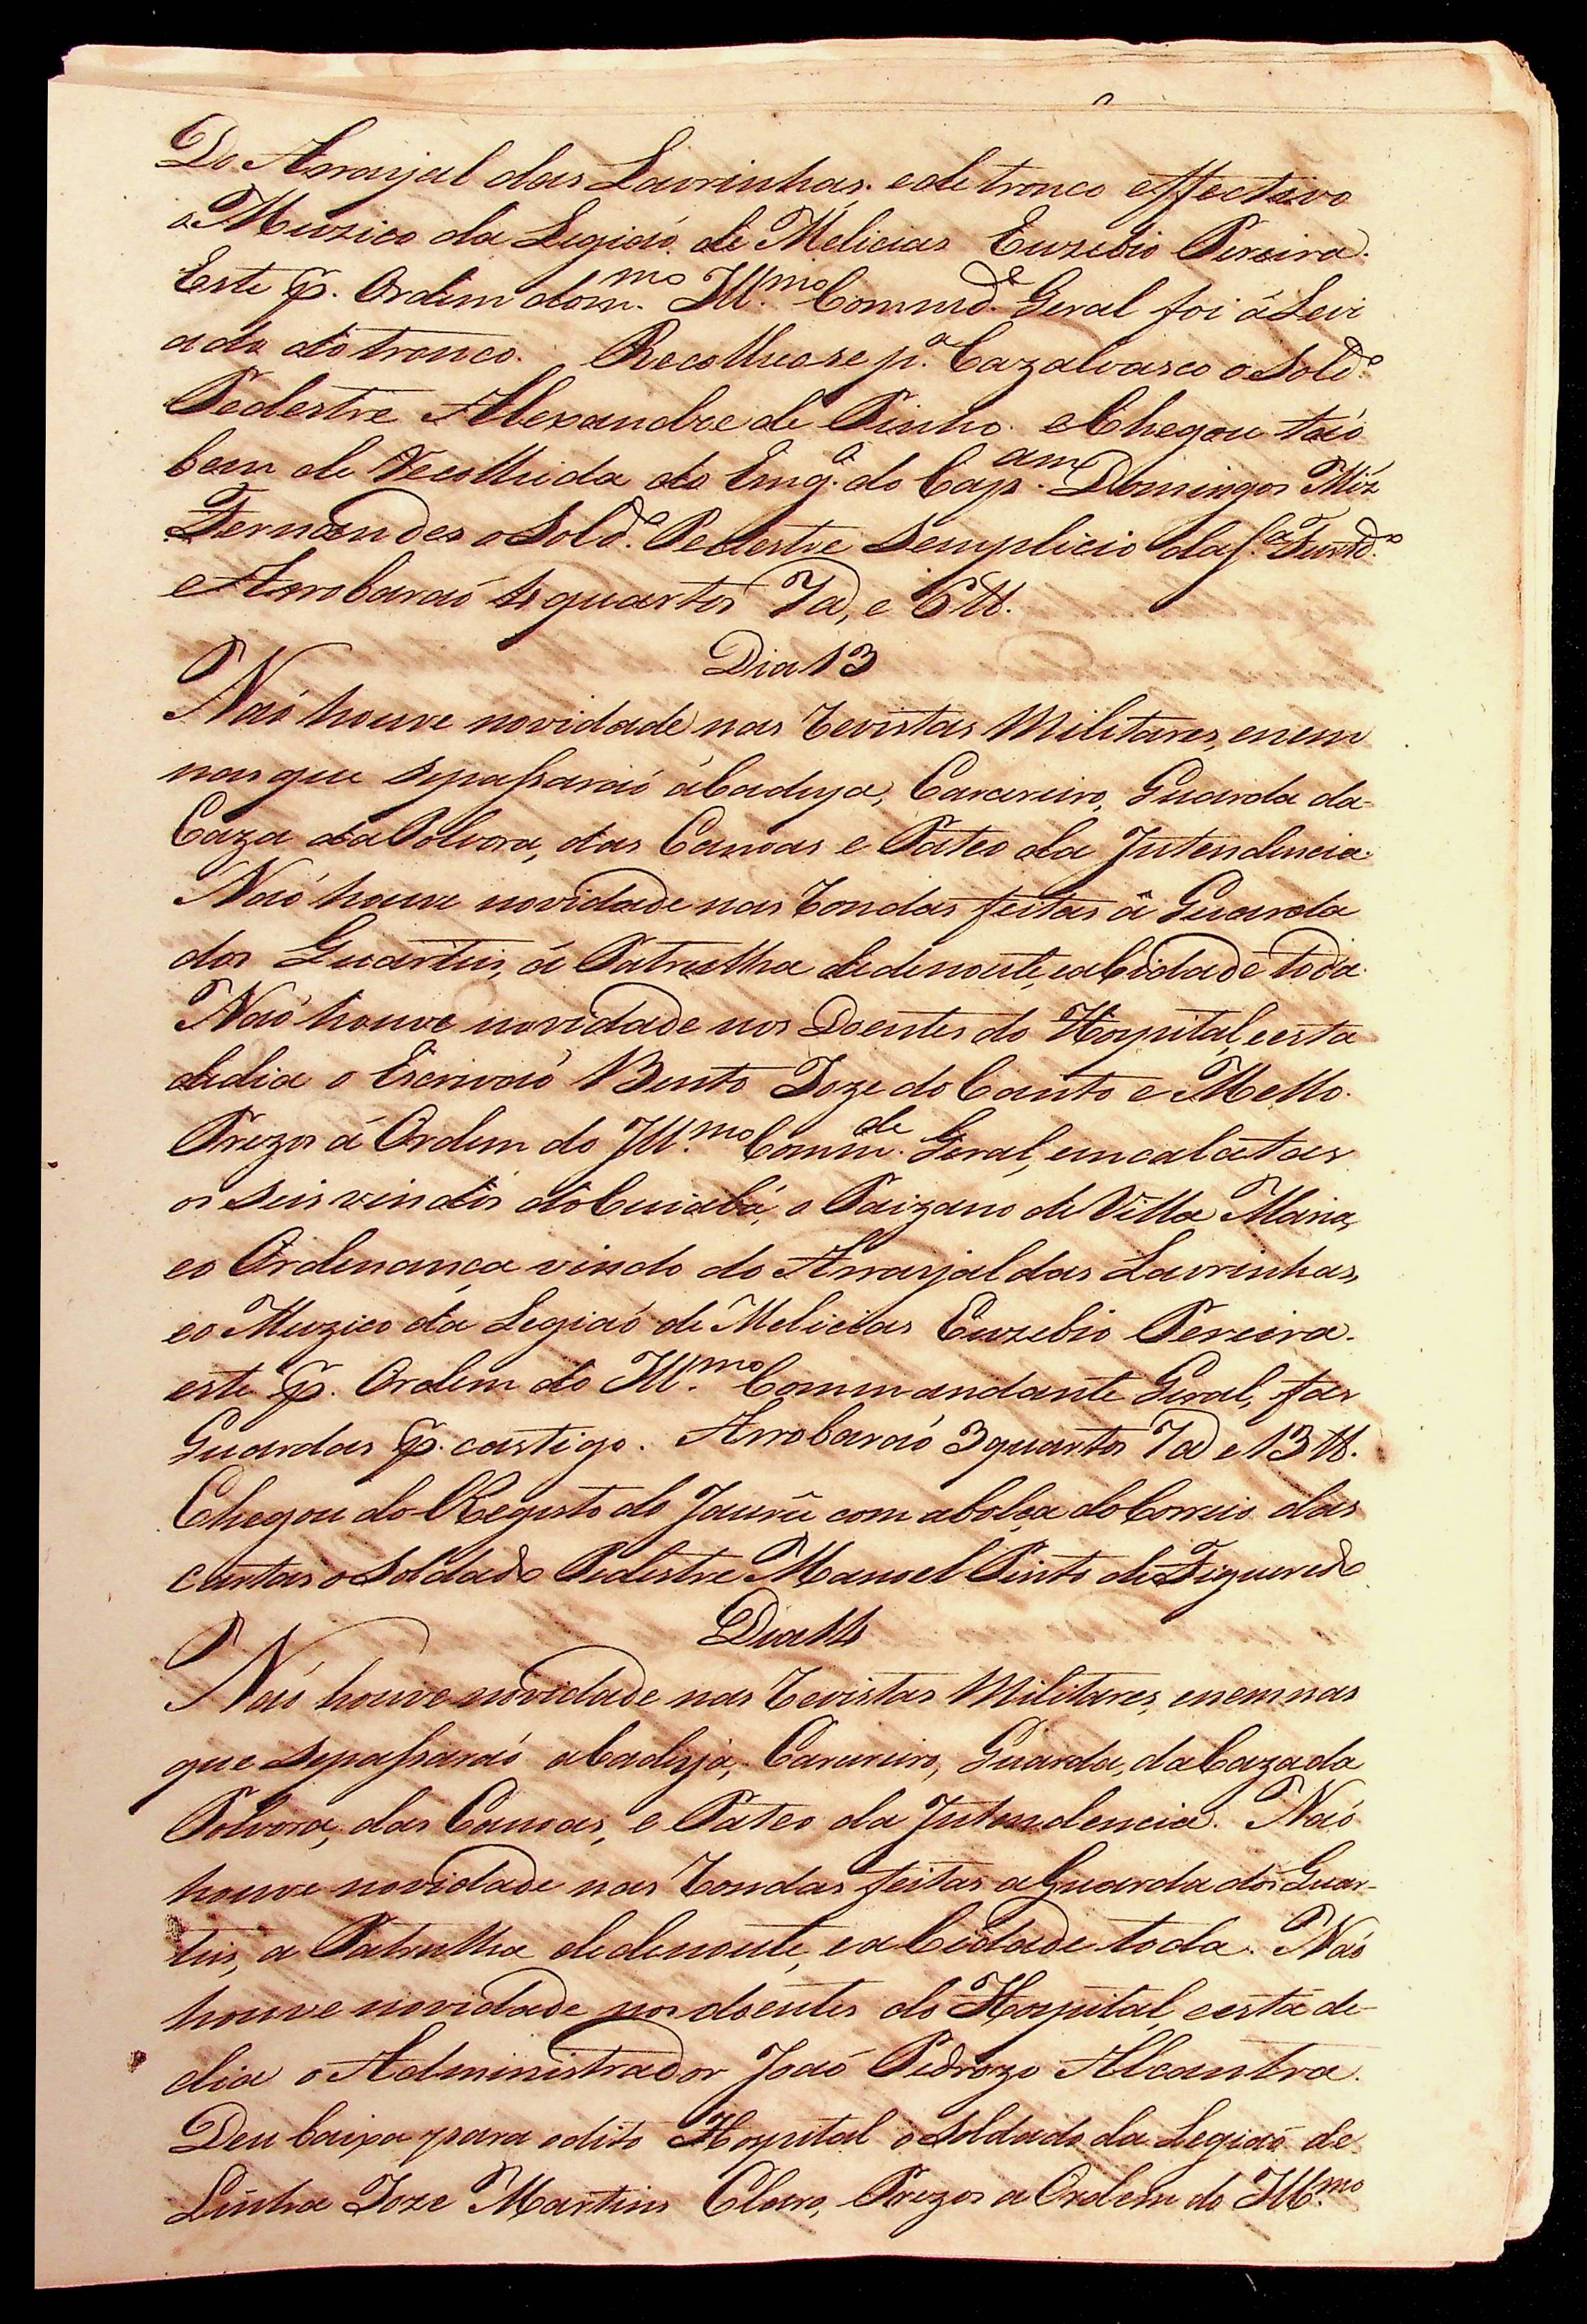 Do Arraijal das Lavrinhas. e de tronco effectivo
o Muzico da Legiaõ de Melicias Euzebio Pereira.
Este p. Ordem do m.mo Ill.mo Commd.e Geral foi áLevi
ado do tronco. Recolheose p.a Cazalvasco o Sold.o
Pedestre Alexandre de Pinho. e Chegou taõ
bem de Recolhida do Eng.o do Cap.am Domingos Miz
Fernandes o Sold.o Pedestre Semplicio da f.a Furtd.o
e Arrobaraõ 4 quartos 7@, e 6 ℔.
Dia 13
Naõ houve novidade nas Revistas Militares, enem
nas que sepaſsaraõ áCadeya, Carcereiro, Guarda da-
Caza daPolvora, das Canoas e Pateo da Jntendencia.
Naõ houve novidade nas Rondas feitas â Guarda
dos Quarteis, á Patrulha dedenoute, eaCidade toda.
Naõ houve novidade nos Doentes do Hospital, eesta
dedia o Escrivaõ Bento Joze do Canto e Mello.
Prezos á Ordem do Jll.mo Comm.de Geral, emcalcetas
os seis vindos doCuiabá, o Paizano de Villa Maria,
eo Ordenança vindo do Arraijal das Lavrinhas,
eo Muzico da Legiaõ de Melicias Euzebio Pereira.
este p. Ordem do Ill.mo Commandante Geral, fas
Guardas p. castigo. Arrobaraõ 3 quartos 7@ e 13 ℔.
Chegou do Registo do Jaurû com abolça do Correio das
cartas o Soldado Pedestre Manoel Pinto de Figueredo
Dia 14
Naõ houve novidade nas Revistas Militares, enem nas
que sepaſsaraõ aCadeya, Carcereiro, Guarda, daCaza da
Polvora, das Canoas, e Pateo da Jntendencia. Naõ
houve novidade nas Rondas feitas aGuarda dos Quar-
teis, a Patrulha dedenoute, e aCidade toda. Naõ
houve novidade nos doentes do Hospital, eestá de-
dia o Administrador Joaõ Pedrozo Alcantra.
Deu baixa para odito Hospital o Soldado da Legiaõ de
Linha Joze Martins Claro, Prezos a Ordem do Ill.mo